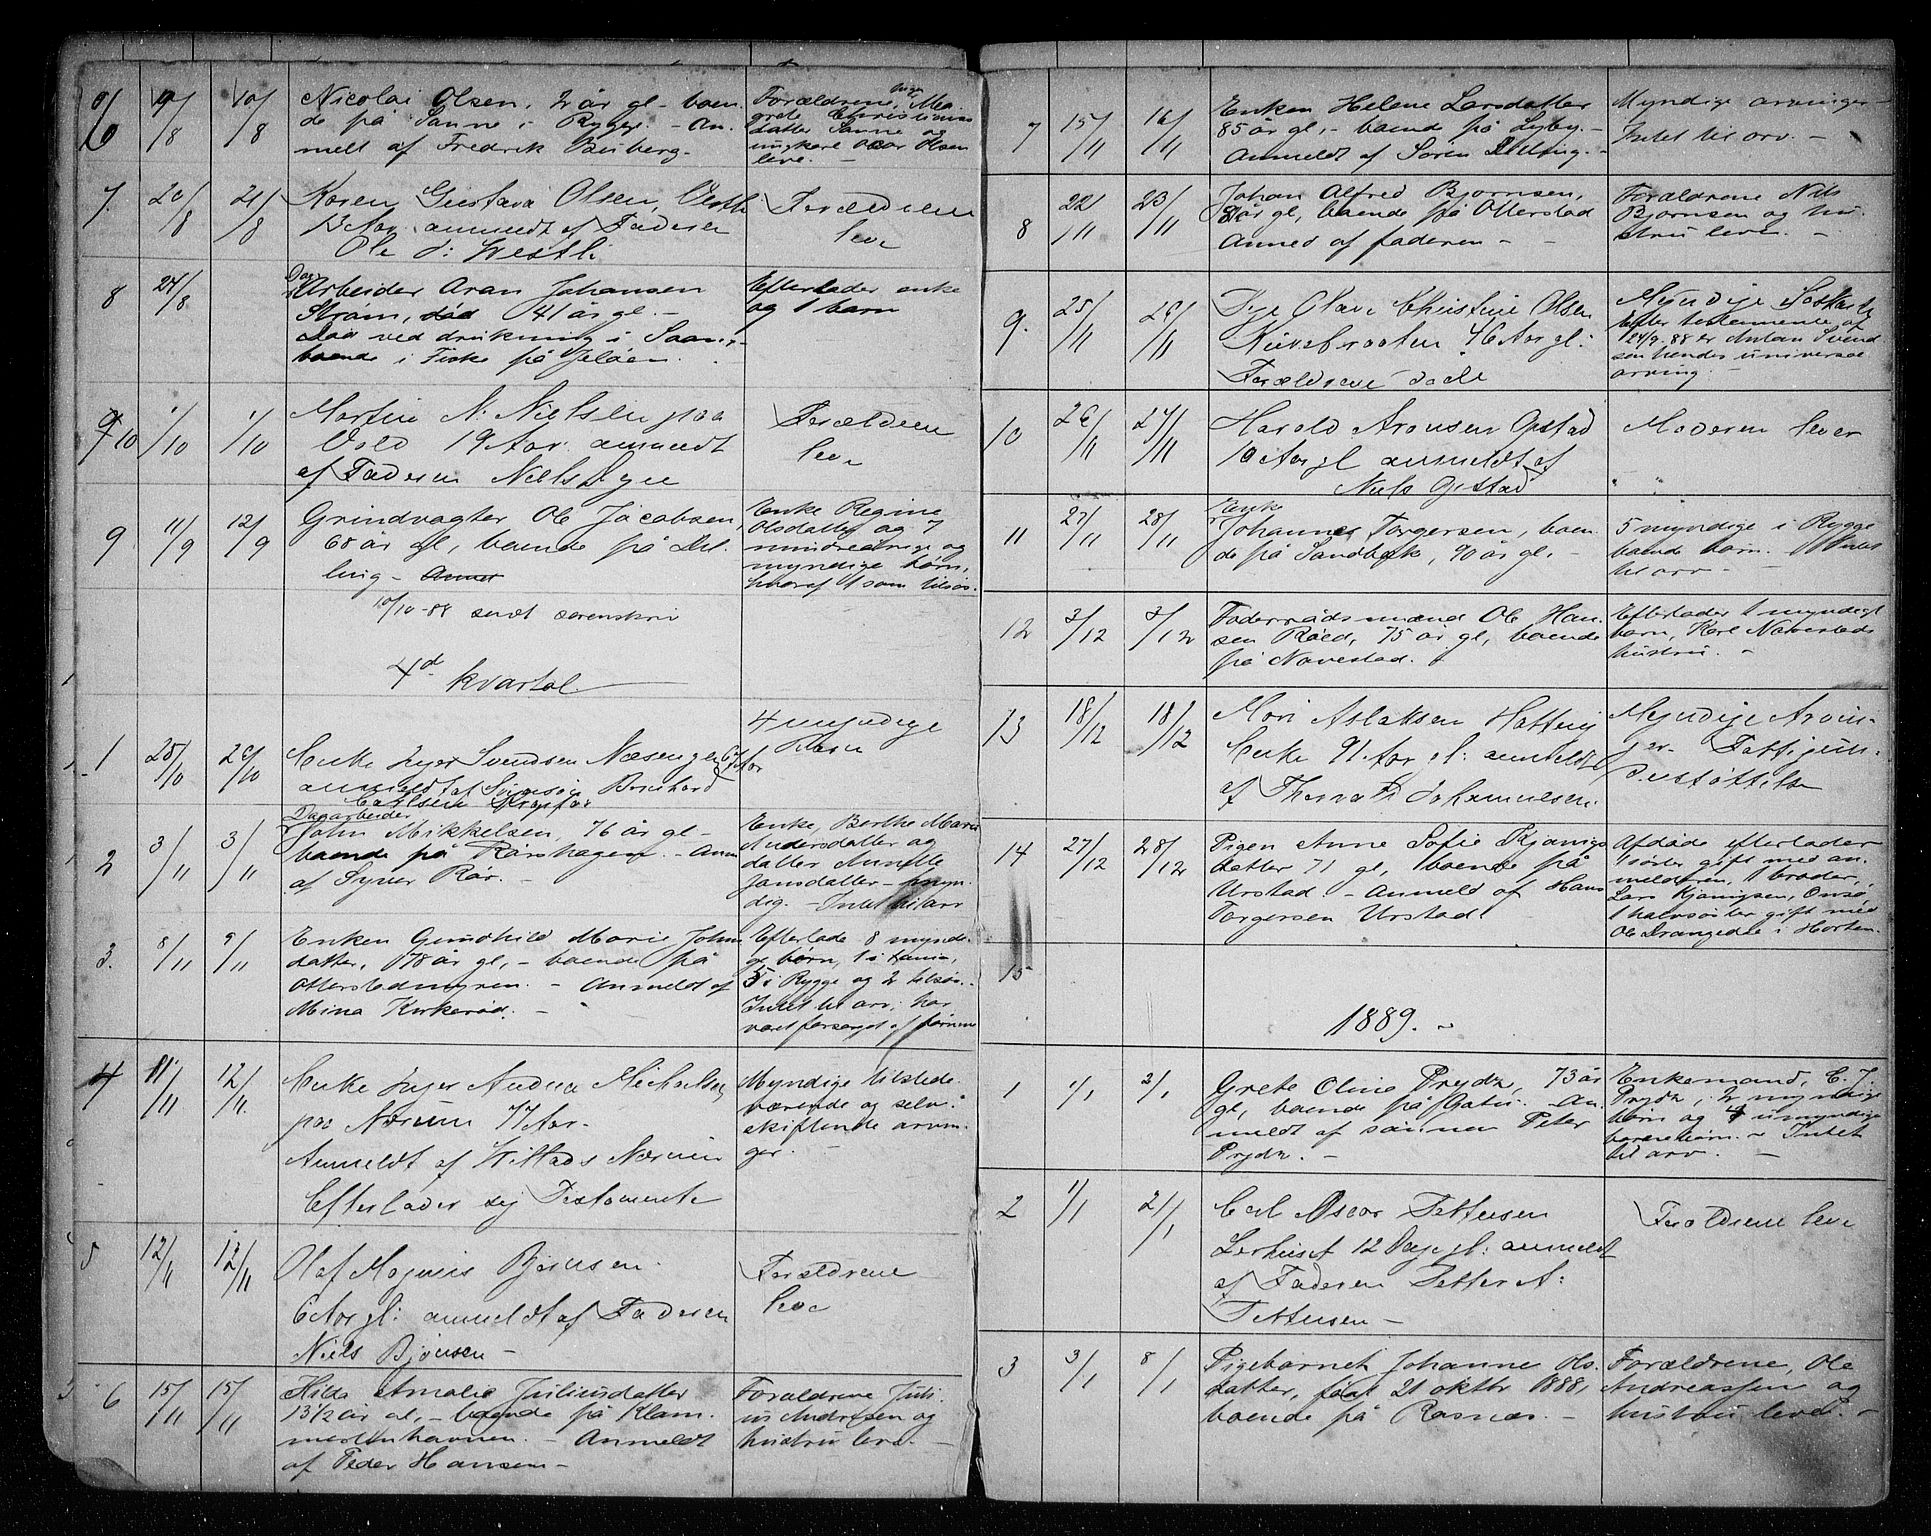 6 9/8 10/8 Nicolai Olsen, 2 år gl- boen-
de på Sanne i Rygge. - An-
melt af Fredrik Buberg.
Forældrene, Ma-
grete Christians
datter Sanne og
ungkarl Oscar Olsen
leve. -
7. 20/8 21/8 Karen Gustava Olsen,
13 Aar. anmeldt af Faderen
Ole O: Westli
Forældrene
leve
8 24/8 Arbeider Aran Johansen
Strøm, død 41 år gl. -
død ved drukning i
boende i Fiske på Jeløen.
Efterlader enke
og 1 barn
9/10 1/10 1/10 Martin N. Nielsen paa
Vold 19 Aar anmeldt
af Faderen Niels Dyre
Forældrene
leve
9 11/9 12/9 Grindvagter Ole Jacobsen,
68 år gl, boende på Dil-
ling - Anmel
Enke Regine
Olsdatter og 7
mindreårige og
myndige børn,
hvoraf 1 som tilsøs.
10/10-88 sendt sorenskri
4d kvartal.
1 25/10 26/10 Enke Inger Svendsen Næsengen
anmeldt af Svigersøn Bernhard
Carlsen
4 myndige
Børn
Dagarbeider
2 3/11 3/11 John Mikkelsen, 76 år gl-
boende på Rørshagen. - Anm
af Syver Rør. -
Enke, Berthe Marie
Andersdatter og
datter Annette
Jansdatter - myn-
dig. - Intet til arv
3. 8/11 9/11 Enken Gundhild Marie Johns
datter, 78 år gl, - boende på
Otterstadmyren. - Anmeldt af
Mina Kirkerød. -
Efterlade 8 myndi-
ge børn, 1 i
5 i Rygge og 2 tilsøs.
Intet til arv; har
været forsørget af børnene
4 11/11 12/11. Enke Inger Andrea Michelsen
paa Nærum 77 Aar.
Anmeldt af Willads Nærum
Efterlader sig Testamente
Myndige tilstede-
værende og selv-
skiftende arvin-
ger. -
5 12/11 12/11 Olaf Magnus Bjørnsen.
6 Aar gl: anmeldt af Faderen
Niels Bjørnsen -
Forældrene
leve
6 15/11 15/11 Hilda Amalie Juliusdatter
13 1/2 år gl, - boende på Klam-
merenhavnen. - Anmeldt
af Peder Hansen -
Forældrene Juli-
us Andresen og
hustru leve. -
7 15/11 16/11 Enken Helene Larsdatter
85 år gl, - boende på Lyby. -
Anmeldt af Søren Dilling. -
Myndige arvinger -
Intet til arv. -
8 22/11 23/11 Johan Alfred Bjørnsen,
8 år gl, boende på Otterstad
Anmed af faderen - -
Forældrene Nils
Bjørnsen og hu-
stru leve. -
9. 25/11 26/11 Pige Olave Christine Olsen
46 Aar gl:
Forældrene døde
Myndige Søskende
Efter testamente af
24/9. 88 er Anton Svend
sen hendes universal
arving.
10 26/11 27/11 Harald Aronsen Opstad
10 Aar gl anmeldt af
Niels Opstad
Moderen lever
" "
Enke
11 27/11 28/11 Johannes Torgersen, boen-
de på Sandbæk, 90 år gl. -
5 myndige i Rygge
boende børn. - Intet
til arv -
12 3/12 3/12 Foderrådsmand Ole Han-
sen Røed, 75 år gl, boende
på Navestad.
Efterlader 1 myndigt
barn, Karl Navestads
hustru. -
13 18/12 18/12 Mari Aslaksen Hatting
Enke 91 Aar gl: anmeldt
af Thorvald Johannesen.
Myndige Arvin-
ger - Fattigun-
derstøttelse
14 27/12 28/12 Pigen Anne Sofie Kjønigs
datter 71 gl, boende på
Urstad. - Anmeld af Hans
Torgersen Urstad.
Afdøde efterlader
1 søster gift med an-
melderen, 1 broder,
Lars Kjønigsen, Onsø,
1 halvsøster gift med
Ole Drangedie i Horten.
15
1889. -
1 1/1 2/1 Grete Oline Prydz, 73 år
gl, boende på Gatu. - An-
meldt af sønnen Peter
Prydz. -
Enkemand, C. J.
Prydz, 2 myndige
børn og 4 umyndige
barnebørn. - Intet
til arv. -
2 1/1 2/1 Carl Oscar Pettersen
Lerhuset 12 Dage gl: anmeldt
af Faderen Petter A:
Pettersen -
Forældrene leve
3 3/1 8/1 Pigebarnet Johanne Ols-
datter, født 21 oktbr 1888,
boende på Rosnæs. -
Forældrene, Ole
Andreassen og
hustru leve. -